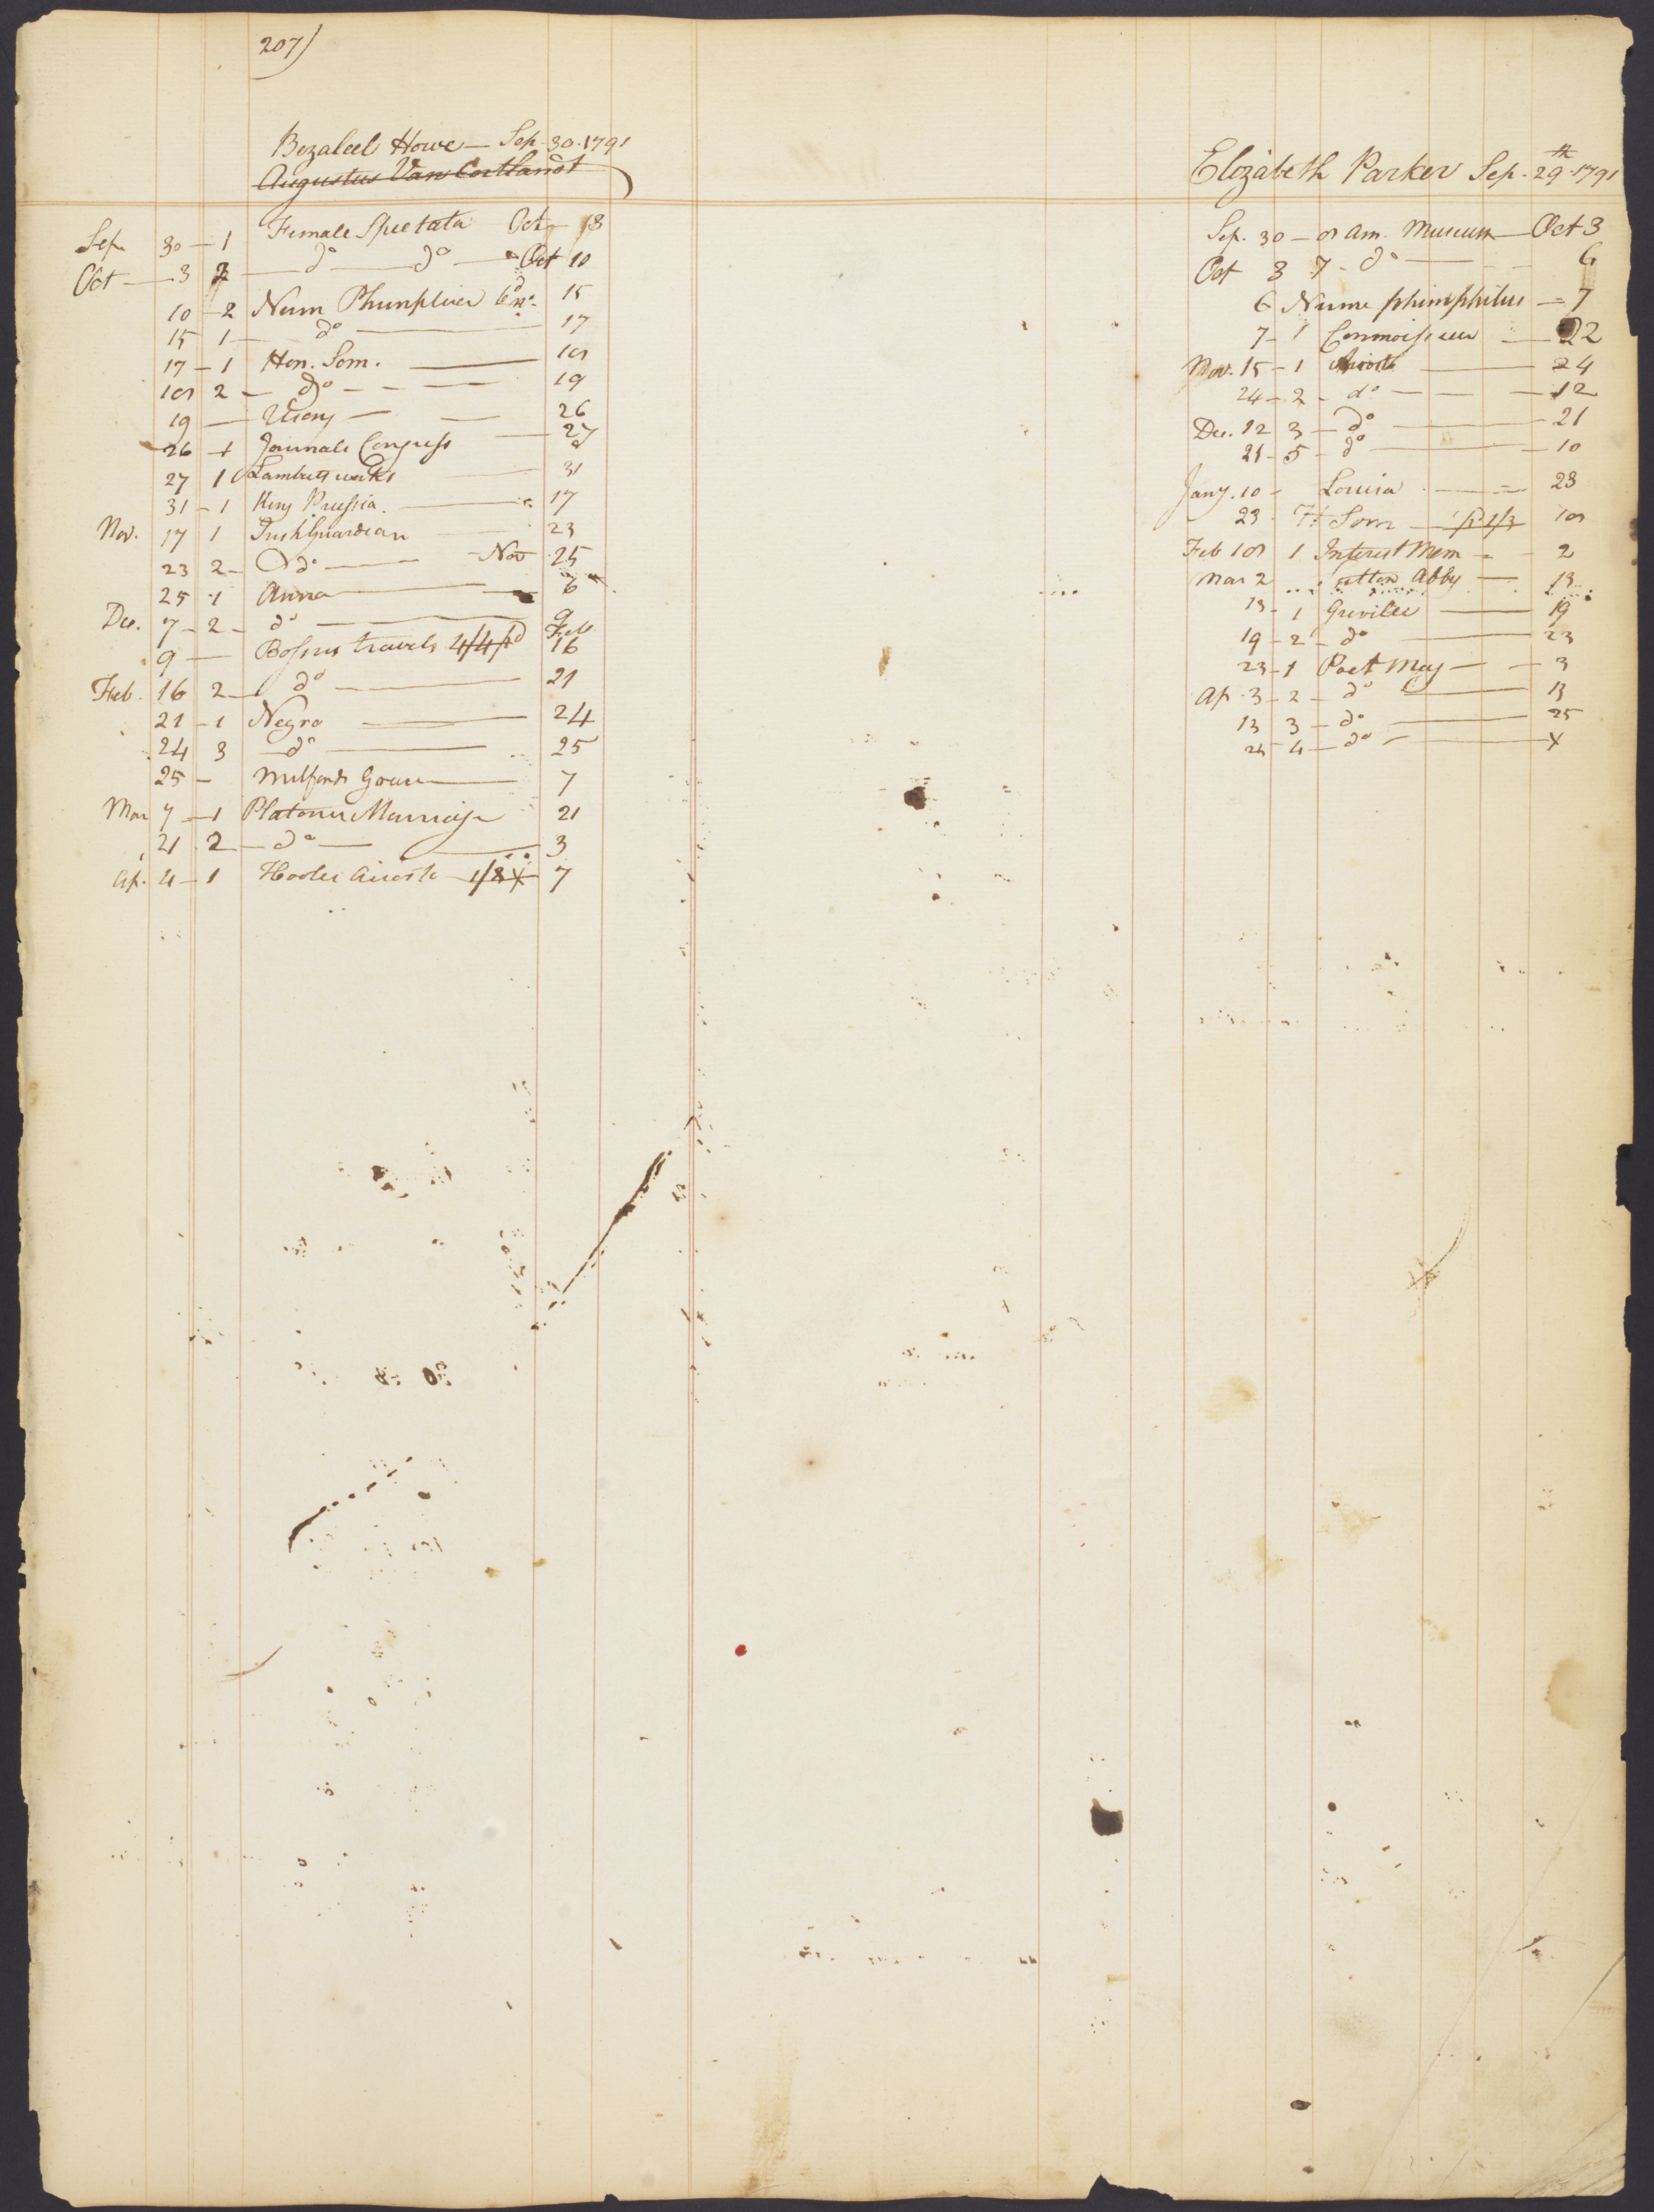 207)
Bezaleel Howe — Sep. 30. 1791
Augustus Van Cortlandt
Sep 30 — 1 Female Spectator Oct — 3
Oct — 3 2 — do — do — Oct 10
10 — 2 Num 15
15 1 — do — 17
17 — 1 Hon. Som. — 18
18 2 — do — 19
19 — — 26
26 — 1 Journals Congress — 27
27 1 Lamberts works — 31
31 — 1 King Prussia. — 17
Nov. 17 1 Irish Guardian — 23
23 2 — do — Nov 25
25 1 Anna — 6
Dec. 7 — 2 — do — 9
9 — Bossus travels 4/4 pd Feb 16
Feb. 16 2 — do — 21
21 — 1 Negro — 24
24 3 — do — 25
25 — Milfords — 7
Mar 7 — 1 Platonic Marriage 21
21 2 — do — 3
Ap. 4 — 1 Hooles Ariosto 1/8 7
Elizabeth Parker Sep. 29th 1791
Sep. 30 — 8 Am. Museum — Oct 3
Oct 3 7 — do — 6
6 Nume — 7
7 — 1 Connoisseur — 22
Nov. 15 — 1 Ariosto — 24
24 — 2 — do — 12
Dec. 12 3 — do — 21
21 — 5 — do — 10
Jany. 10 — Louisa — 23
23 H Som — 18
Feb 18 1 Interest Mem — 2
Mar 2 Abby — 13
13 — 1 Greville — 19
19 — 2 — do — 23
23 — 1 Poet Mag — 3
Ap. 3 — 2 — do — 13
13 3 — do — 25
25 4 — do — X